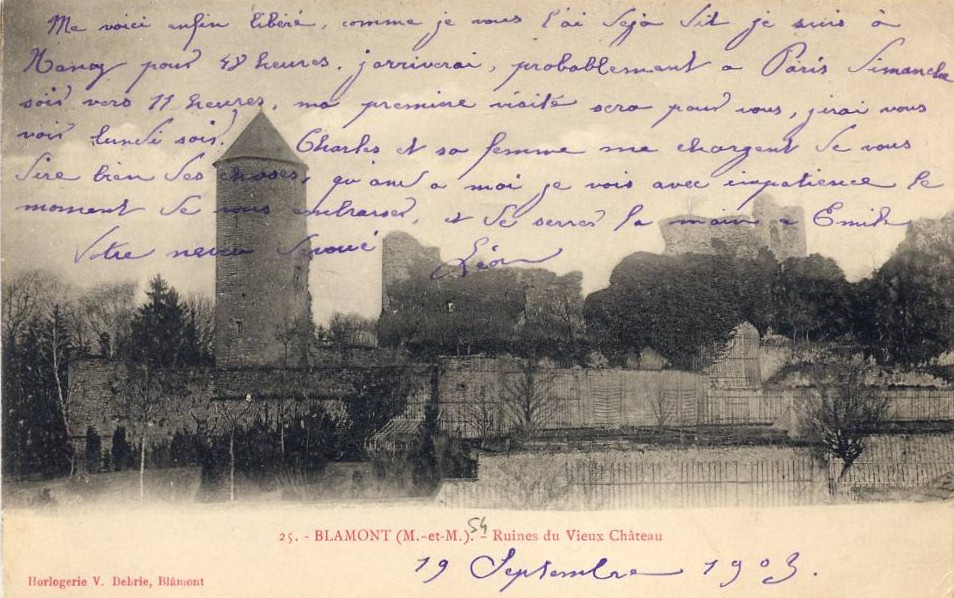 Me voici enfin libéré, comme je vous l'ai déjà dit je suis à
Nancy pour 48 heures. j'arriverai, probablement a Paris dimanche
soir vers 11 heures, ma premiere visite sera pour vous, j'irai vous
voir lundi soir. Charles et sa femme me chargent de vous
dire bien des choses, quand a moi je vois avec impatience le
moment de vous embrasser, et de serrer la main a Emile
Votre neveu dévoué Léon
25. - BLAMONT (M.-et-M.). 54 - Ruines du Vieux Château
19 Septembre 1903.
Horlogerie V. Debrie, Blâmont